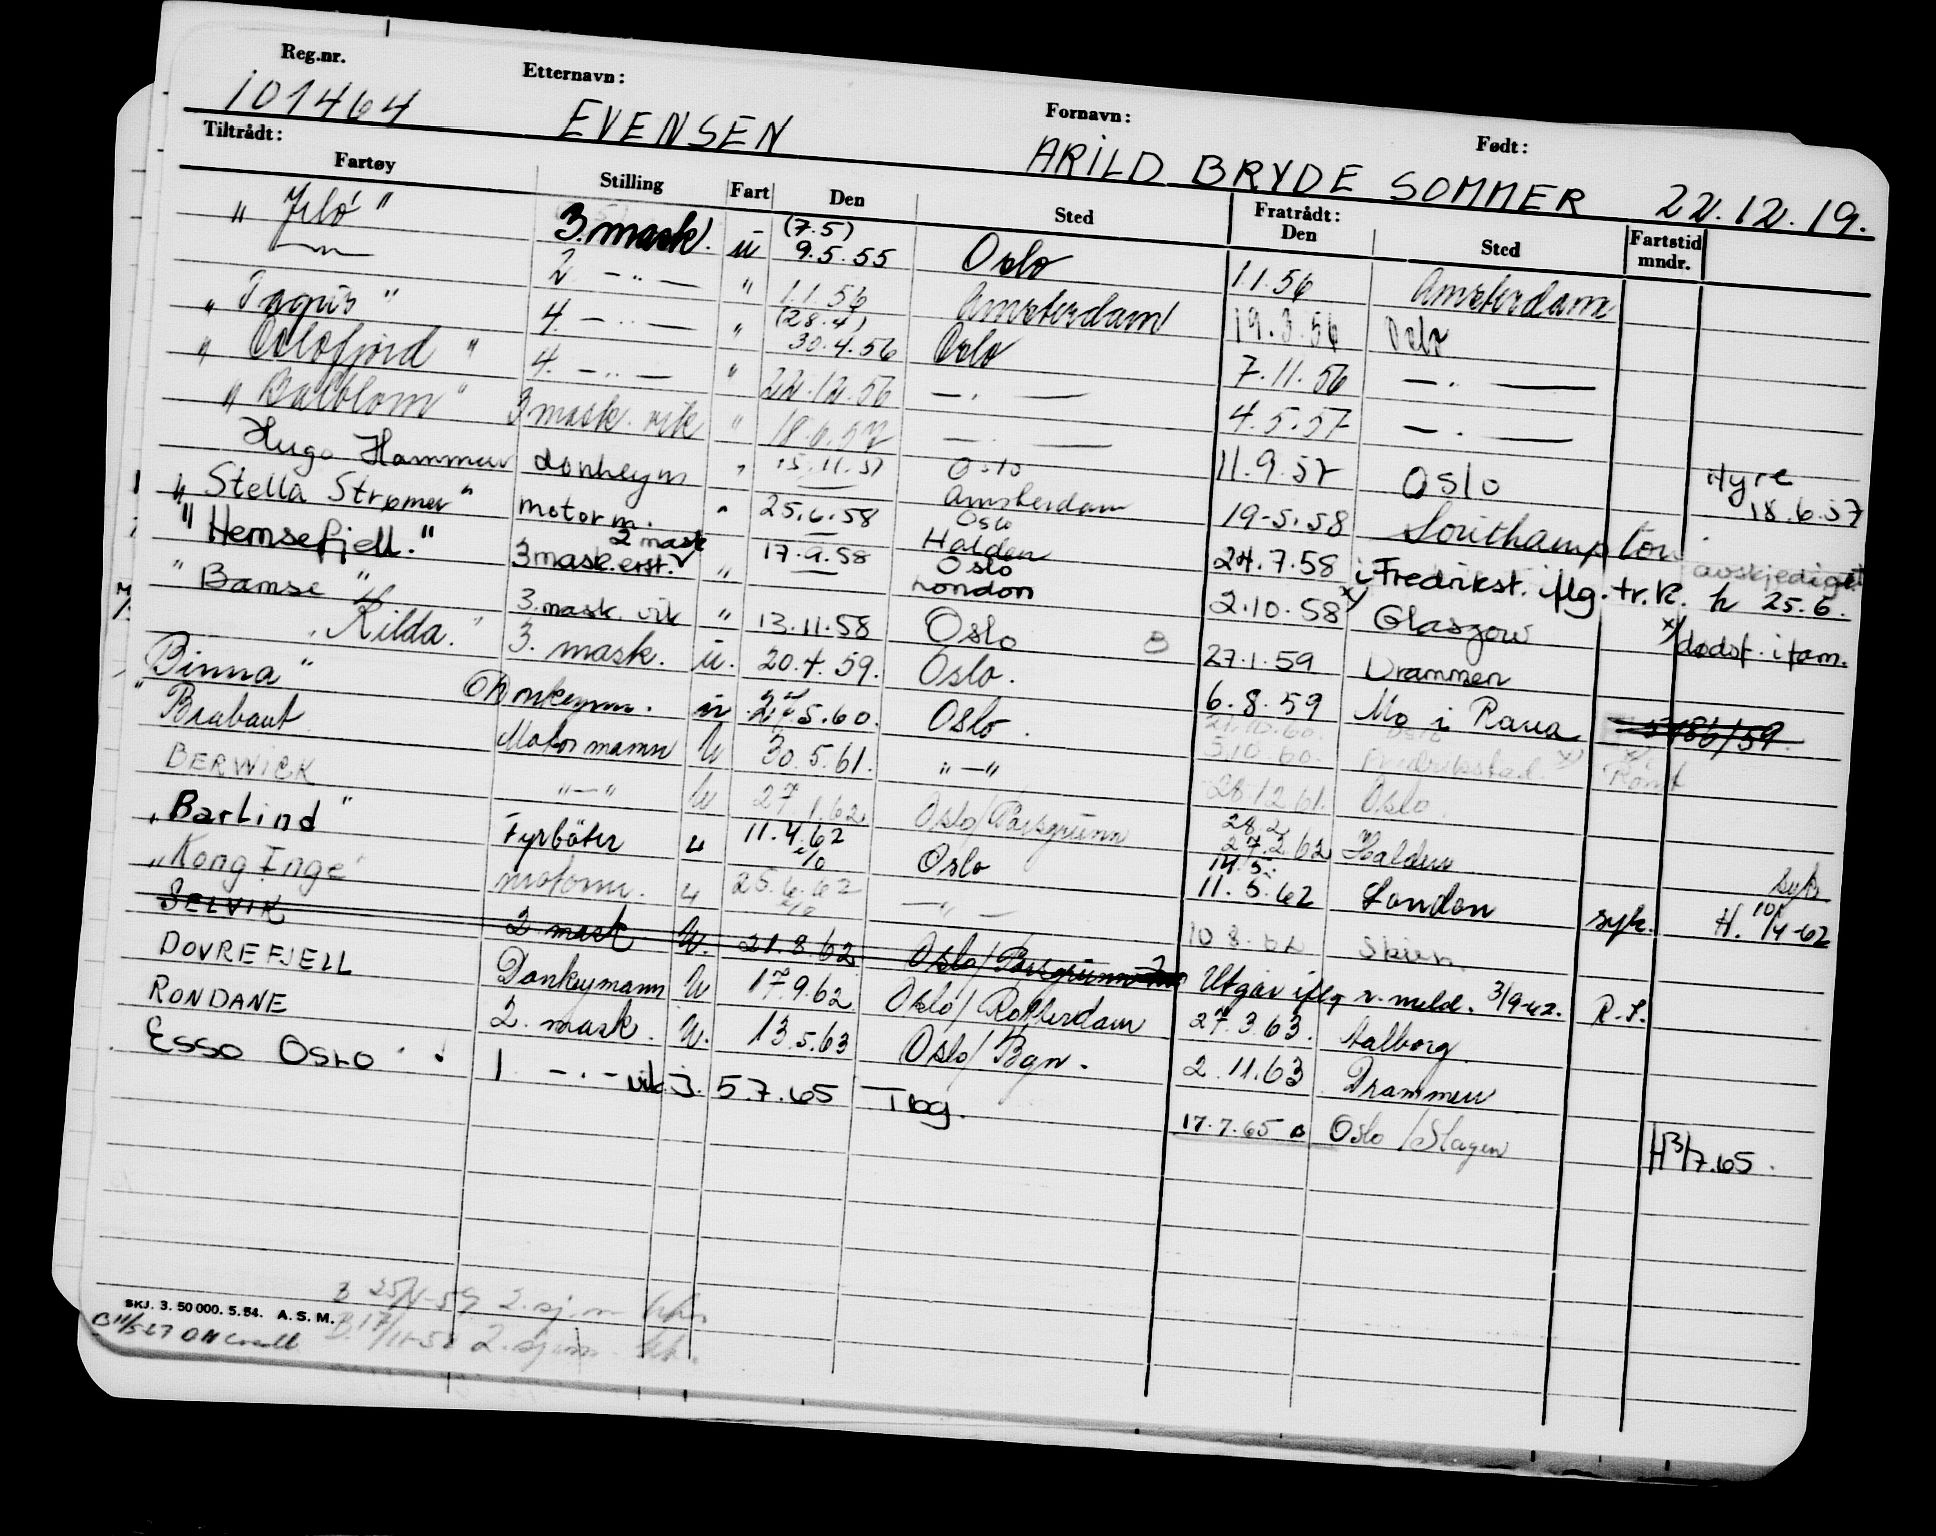 Reg.nr. Etternavn: Fornavn: Født:
101464 EVENSEN ARILD BRYDE SOMMER 22.12.19.
Tiltrådt: Fratrådt:
Fartøy Stilling Fart Den Sted Den Sted Fartstid mndr.
3. mask. u (7.5) 9.5.55 Oslo 1.1.56 Amsterdam
2 - " - " 1.1.56 Amsterdam 19.3.56 Oslo
4. - " - " (28.4) 30.4.56 Oslo 7.11.56 - " -
" Oslofjord " 4. - " - " 22.12.56 - " - 4.5.57 - " -
" Balblom " 3 mask. vik " 18.6.57 - " - 11.9.57 Oslo Hyre 18.6.57
Hugo Hammer donkeym " 15.11.57 Oslo Amsterdam 19-5.58 Southampton
" Stella Strømer " motorm. " 25.6.58 Oslo Halden 24.7.58 i Fredrikst. iflg. tr.k. avskjediget h 25.6.
" Hemsefjell. " 3 mask. erst. 2 mask " 17.9.58 Oslo London 2.10.58 x) Glasgow x) dødsf. i fam.
" Bamse " 3. mask. vik " 13.11.58 Oslo B 27.1.59 Drammen
" Kilda. " 3. mask. u. 20.4.59. Oslo. 6.8.59 Mo i Rana
Binna " Donkeym. u 5.60. Oslo. 5.10.60. Fredrikstad x)
" Brabant Motormann U 30.5.61. " - " 28.12.61. Oslo
BERWICK " - " U 27.1.62 Oslo/Porsgrunn 28.2 27.2.62 Halden
" Barlind " Fyrbøter u 11.4.62 Oslo 14.5. 11.5.62 London syk. H. 10/4-62
" Kong Inge " motorm. u 25.6.62 - " - 10.8.62 Skien
SELVIK 2 mask U. 21.8.62 Oslo/Porsgrunn Utgår iflg r. meld. 3/9-62. R.S.
DOVREFJELL Donkeymann U 17.9.62 Oslo/Rotterdam 27.3.63. Aalborg.
RONDANE 2. mask. U. 13.5.63 Oslo/Bgn. 2.11.63 Drammen
ESSO OSLO 1 - " - vik J. 5.7.65 Tbg. 17.7.65 B Oslo/Slagen H 3/7.65.
SKJ. 3. 50 000. 5. 54. A. S. M.